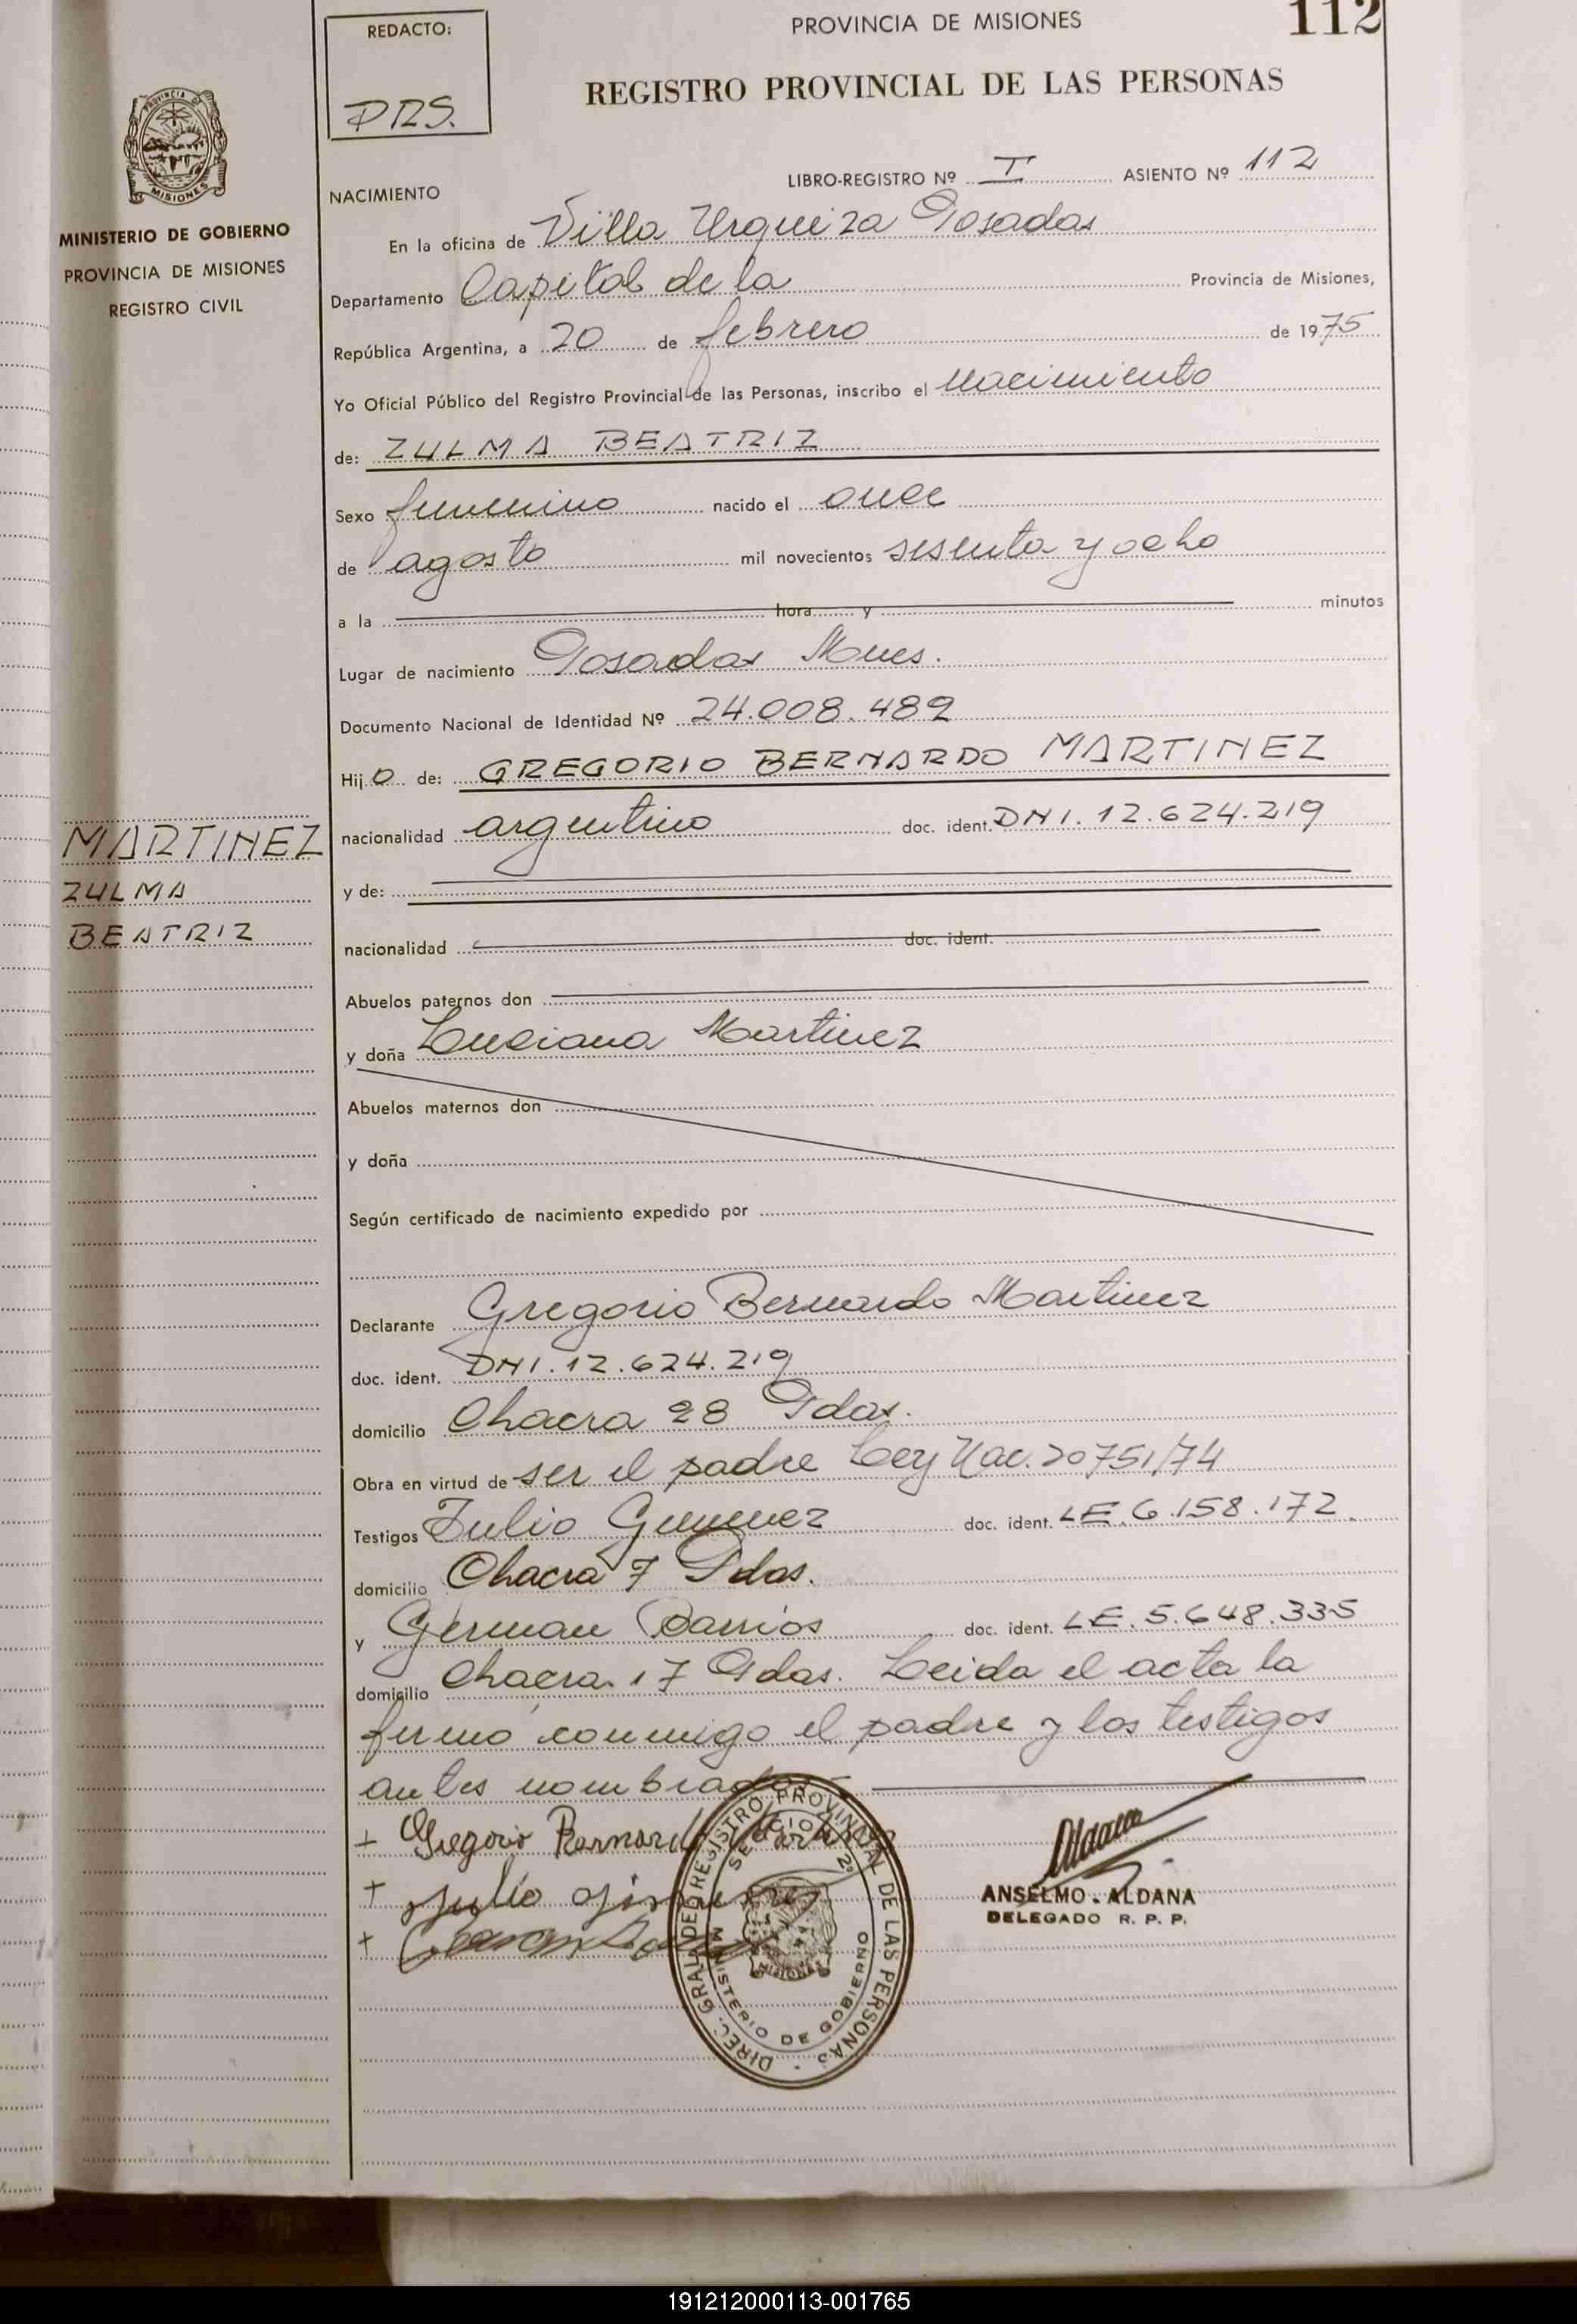 REDACTO:
PROVINCIA DE MISIONES
112
REGISTRO PROVINCIAL DE LAS PERSONAS
PRS.
PROVINCIA DE
MISIONES
MINISTERIO DE GOBIERNO
PROVINCIA DE MISIONES
REGISTRO CIVIL
LIBRO-REGISTRO Nº I ASIENTO Nº 112
NACIMIENTO
En la oficina de Villa Urquiza Posadas
Departamento Capital de la Provincia de Misiones,
República Argentina, a 20 de febrero de 1975
Yo Oficial Público del Registro Provincial de las Personas, inscribo el Nacimiento
de: ZULMA BEATRIZ
Sexo femenino nacido el once
de agosto mil novecientos sesenta y ocho
a la hora y minutos
Lugar de nacimiento Posadas Mnes.
Documento Nacional de Identidad Nº 24.008.489
Hijo de: GREGORIO BERNARDO MARTINEZ
MARTINEZ
ZULMA
BEATRIZ
nacionalidad argentino doc. ident. DNI. 12.624.219
y de:
nacionalidad doc. ident.
Abuelos paternos don
y doña Luciana Martinez
Abuelos maternos don
y doña
Según certificado de nacimiento expedido por
Declarante Gregorio Bernardo Martinez
doc. ident. DNI. 12.624.219
domicilio Chacra 28 Pdas.
Obra en virtud de ser el padre Ley Nac. 20751/74
Testigos Julio Gimenez doc. ident. LE. 6.158.172
domicilio Chacra 7 Pdas.
y German Barrios doc. ident. LE. 5.648.335
domicilio Chacra 17 Pdas. Leida el acta la
firmó conmigo el padre y los testigos
antes nombrados
+ Gregorio Bernardo Martinez
+ Julio Gimenez
+
ANSELMO ALDANA
DELEGADO R. P. P.
DIREC. GRAL. DEL REGISTRO PROVINCIAL DE LAS PERSONAS
SECCION 2ª
MISIONES
MINISTERIO DE GOBIERNO
191212000113-001765